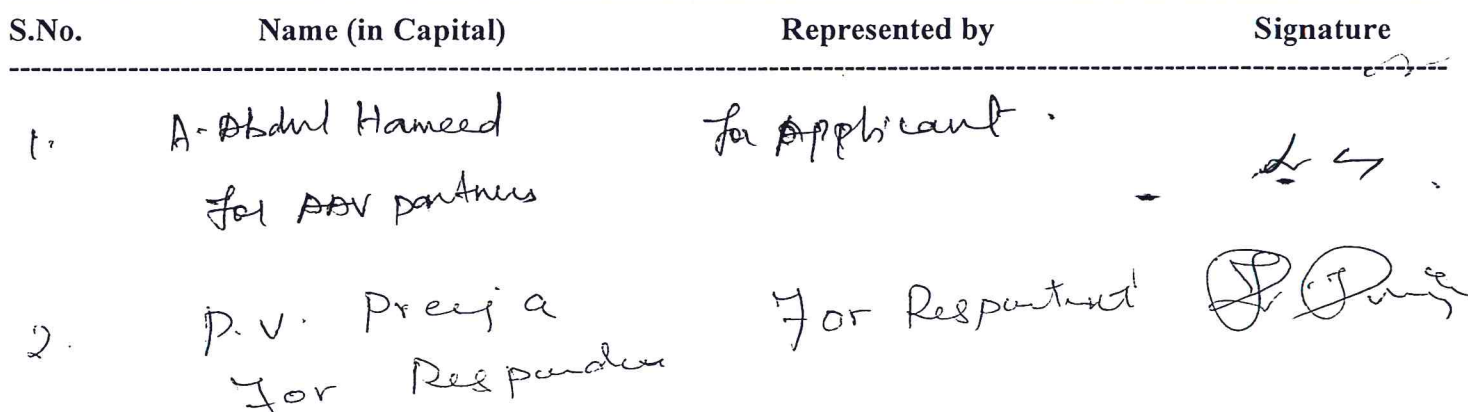 S.No. Name (in Capital) Represented by Signature
1. A. Abdul Hameed for Applicant.
for AAV partners
2. P.V. Preeja For Respontent
For Responden